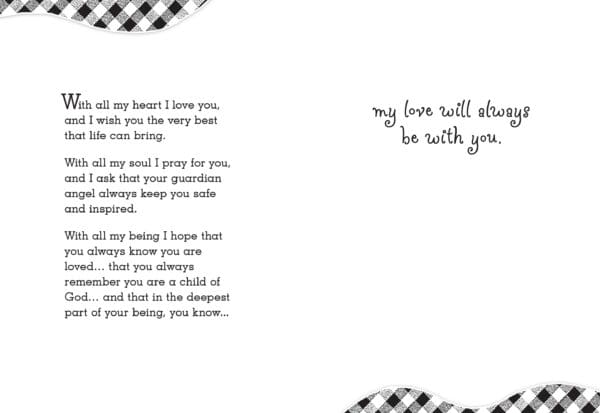 With all my heart I love you,
and I wish you the very best
that life can bring.
With all my soul I pray for you,
and I ask that your guardian
angel always keep you safe
and inspired.
With all my being I hope that
you always know you are
loved... that you always
remember you are a child of
God... and that in the deepest
part of your being, you know...
my love will always
be with you.